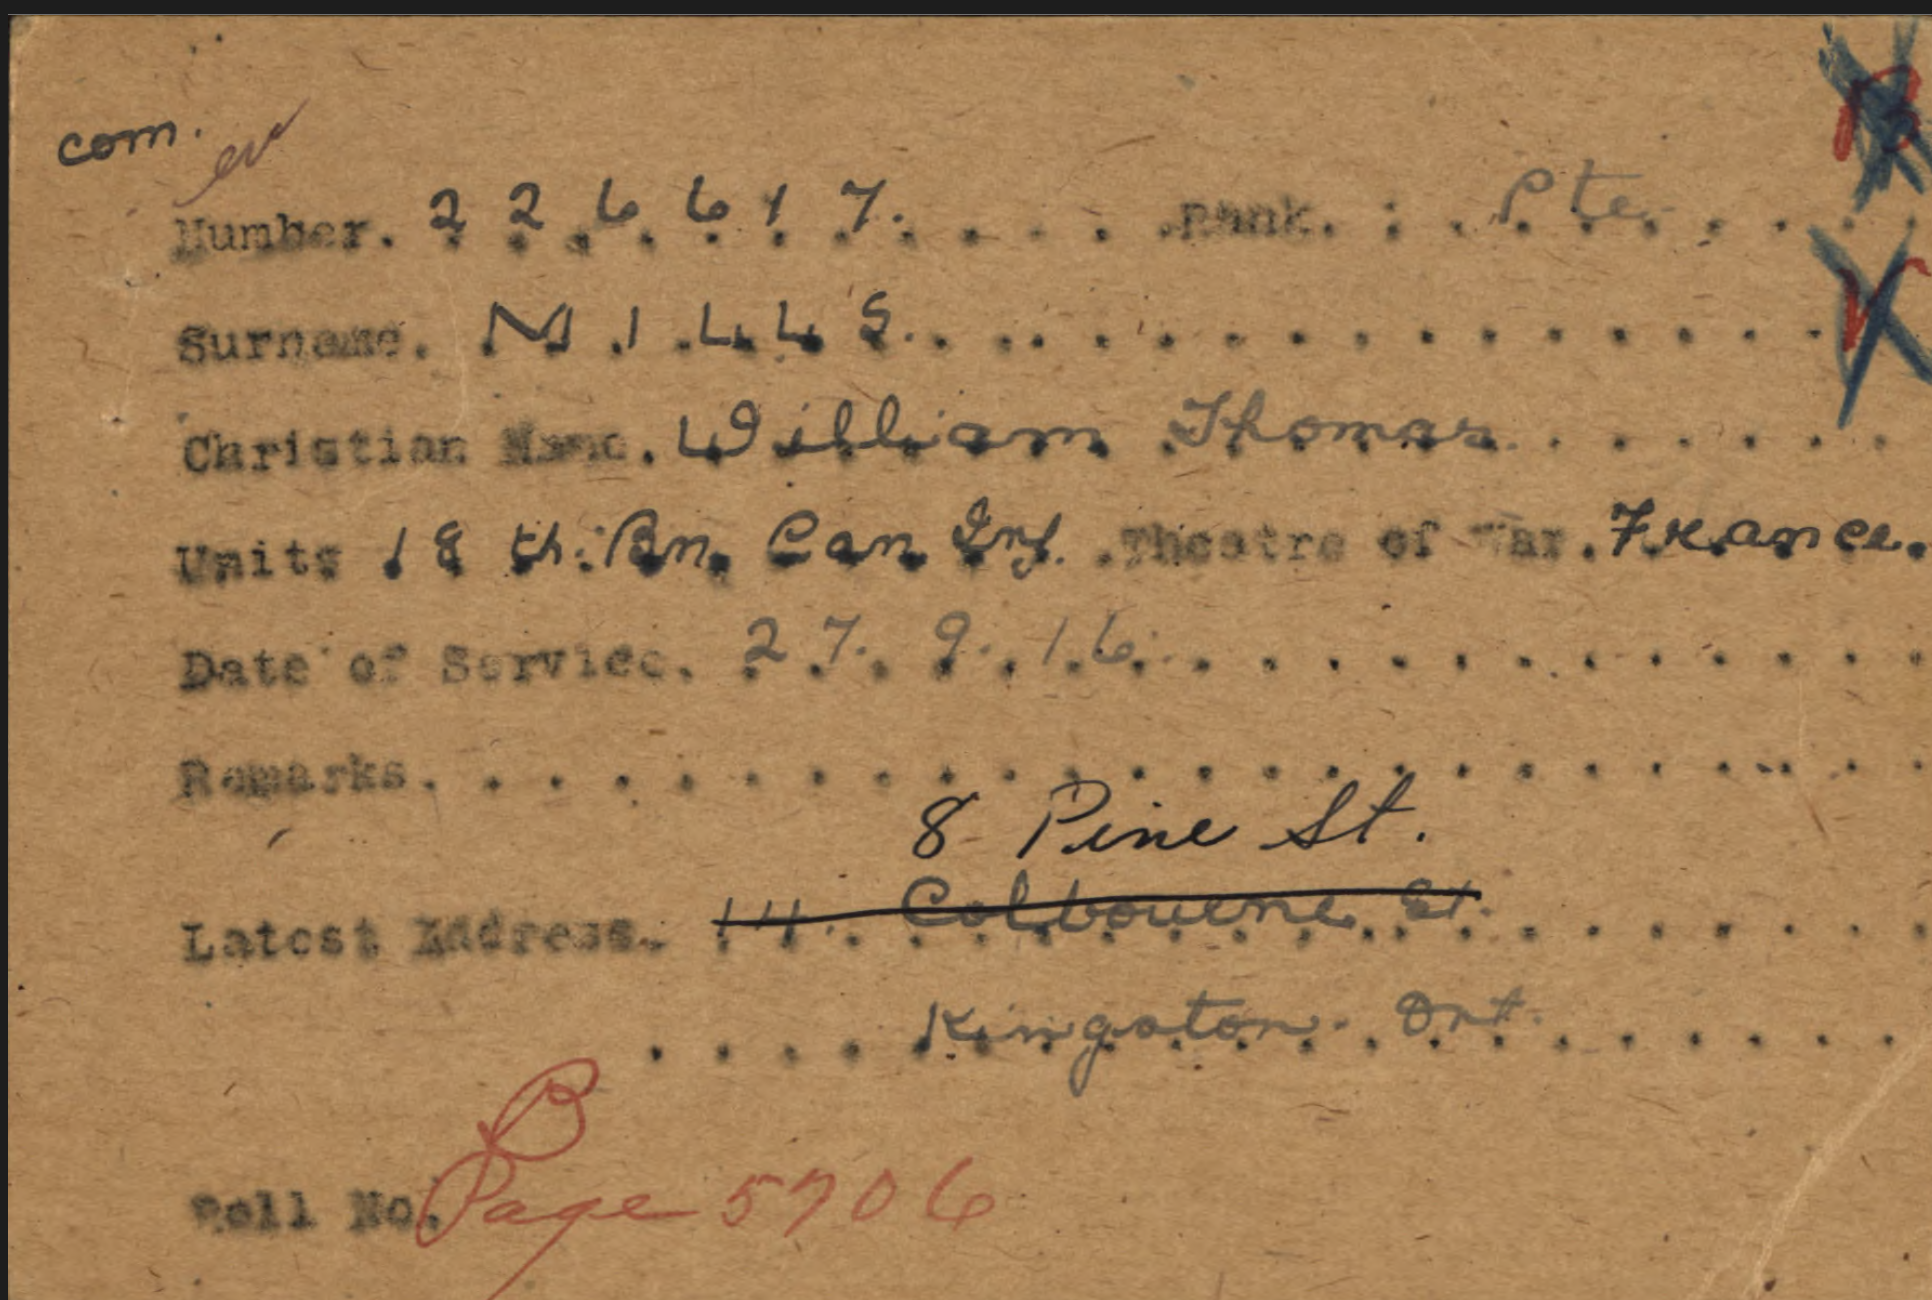 com.
Number. 226617. Rank. Pte.
Surname. MILLS.
Christian Name. William Thomas
Units 18th. Bn. Can Inf. Theatre of War. France.
Date of Service. 27. 9. 16.
Remarks.
8 Pine St.
Latest Address. 14. Colbourne St.
Kingston. Ont.
B
Roll No. Page 5706